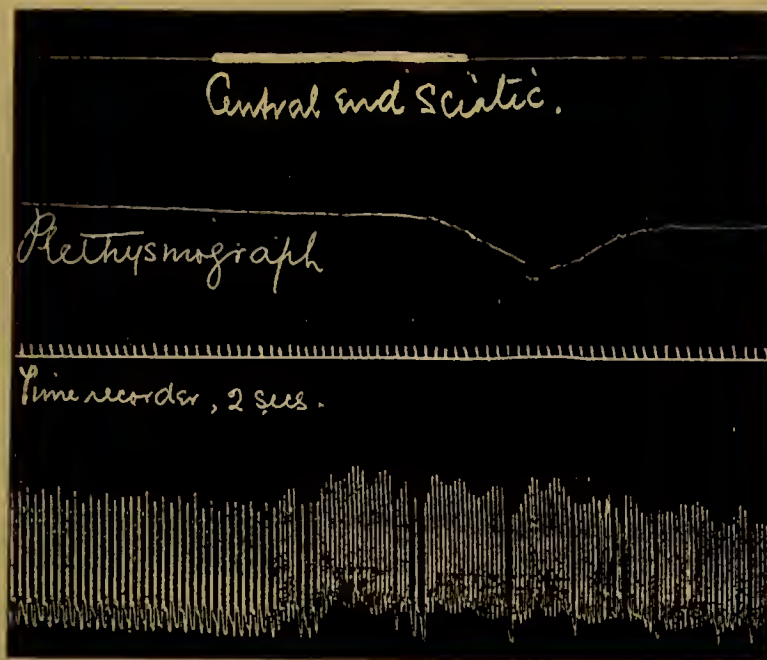 Central end Sciatic.
Plethysmograph
Time recorder, 2 secs.